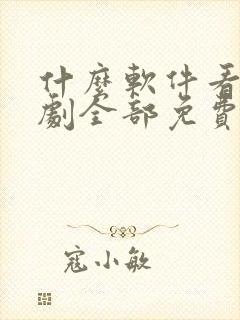 什麼軟件看
劇全部免費
寇小敏